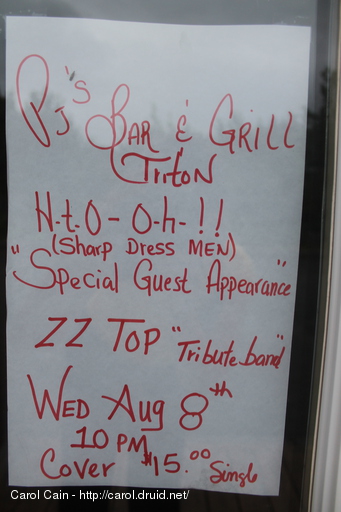 PJ's
BAR & GRILL
Triton
H.t.O- O.h-!!
(Sharp Dress MEN)
"Special Guest Appearance"
ZZ TOP "Tribute band"
WED Aug 8th
10 PM
Cover $15.00 Single
Carol Cain - http://carol.druid.net/